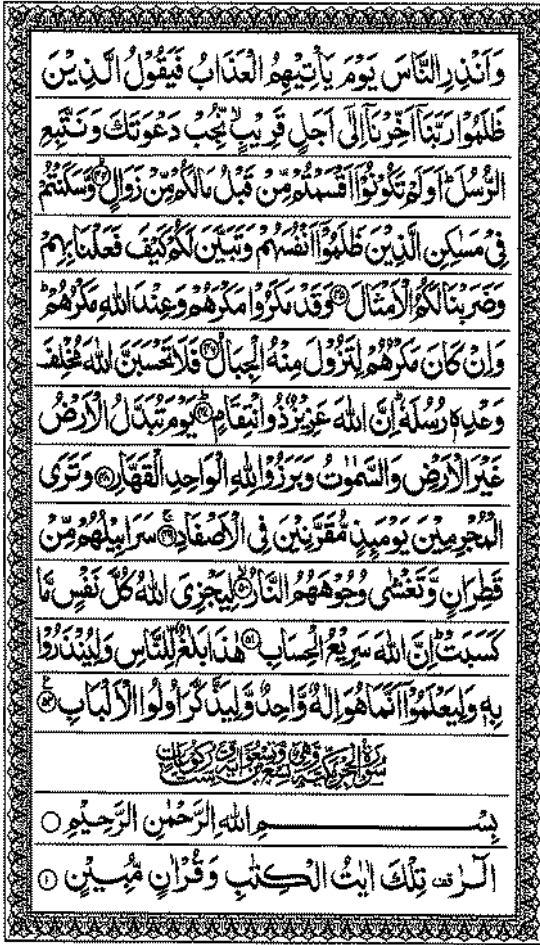 وَاَنْذِرِ النَّاسَ يَوْمَ يَاْتِيْهِمُ الْعَذَابُ فَيَقُوْلُ الَّذِيْنَ
ظَلَمُوْا رَبَّنَاۤ اَخِّرْنَاۤ اِلٰۤى اَجَلٍ قَرِيْبٍۙ نُّجِبْ دَعْوَتَكَ وَنَتَّبِعِ
الرُّسُلَؕ اَوَلَمْ تَكُوْنُوْۤا اَقْسَمْتُمْ مِّنْ قَبْلُ مَالَكُمْ مِّنْ زَوَالٍۙ‏﴿۴۴﴾ وَّسَكَنْتُمْ
فِيْ مَسٰكِنِ الَّذِيْنَ ظَلَمُوْۤا اَنْفُسَهُمْ وَتَبَيَّنَ لَكُمْ كَيْفَ فَعَلْنَا بِهِمْ
وَضَرَبْنَا لَكُمُ الْاَمْثَالَ ﴿۴۵﴾ وَقَدْ مَكَرُوْا مَكْرَهُمْ وَعِنْدَ اللّٰهِ مَكْرُهُمْؕ
وَاِنْ كَانَ مَكْرُهُمْ لِتَزُوْلَ مِنْهُ الْجِبَالُ ﴿۴۶﴾ فَلَا تَحْسَبَنَّ اللّٰهَ مُخْلِفَ
وَعْدِهٖ رُسُلَهٗؕ اِنَّ اللّٰهَ عَزِيْزٌ ذُو انْتِقَامٍؕ ﴿۴۷﴾ يَوْمَ تُبَدَّلُ الْاَرْضُ
غَيْرَ الْاَرْضِ وَالسَّمٰوٰتُ وَبَرَزُوْا لِلّٰهِ الْوَاحِدِ الْقَهَّارِ ﴿۴۸﴾ وَتَرَى
الْمُجْرِمِيْنَ يَوْمَئِذٍ مُّقَرَّنِيْنَ فِي الْاَصْفَادِۚ ﴿۴۹﴾ سَرَابِيْلُهُمْ مِّنْ
قَطِرَانٍ وَّتَغْشٰى وُجُوْهَهُمُ النَّارُۙ ﴿۵۰﴾ لِيَجْزِيَ اللّٰهُ كُلَّ نَفْسٍ مَّا
كَسَبَتْؕ اِنَّ اللّٰهَ سَرِيْعُ الْحِسَابِ ﴿۵۱﴾ هٰذَا بَلٰغٌ لِّلنَّاسِ وَلِيُنْذَرُوْا
بِهٖ وَلِيَعْلَمُوْۤا اَنَّمَا هُوَ اِلٰهٌ وَّاحِدٌ وَّلِيَذَّكَّرَ اُولُوا الْاَلْبَابِ ﴿۵۲﴾
سُوْرَةُ الْحِجْرِ مَكِّيَّةٌ وَّهِيَ تِسْعٌ وَّتِسْعُوْنَ اٰيَةً وَّسِتُّ رُكُوْعَاتٍ
بِسْمِ اللّٰهِ الرَّحْمٰنِ الرَّحِيْمِ ○
الٓرٰ تِلْكَ اٰيٰتُ الْكِتٰبِ وَقُرْاٰنٍ مُّبِيْنٍ ﴿۱﴾